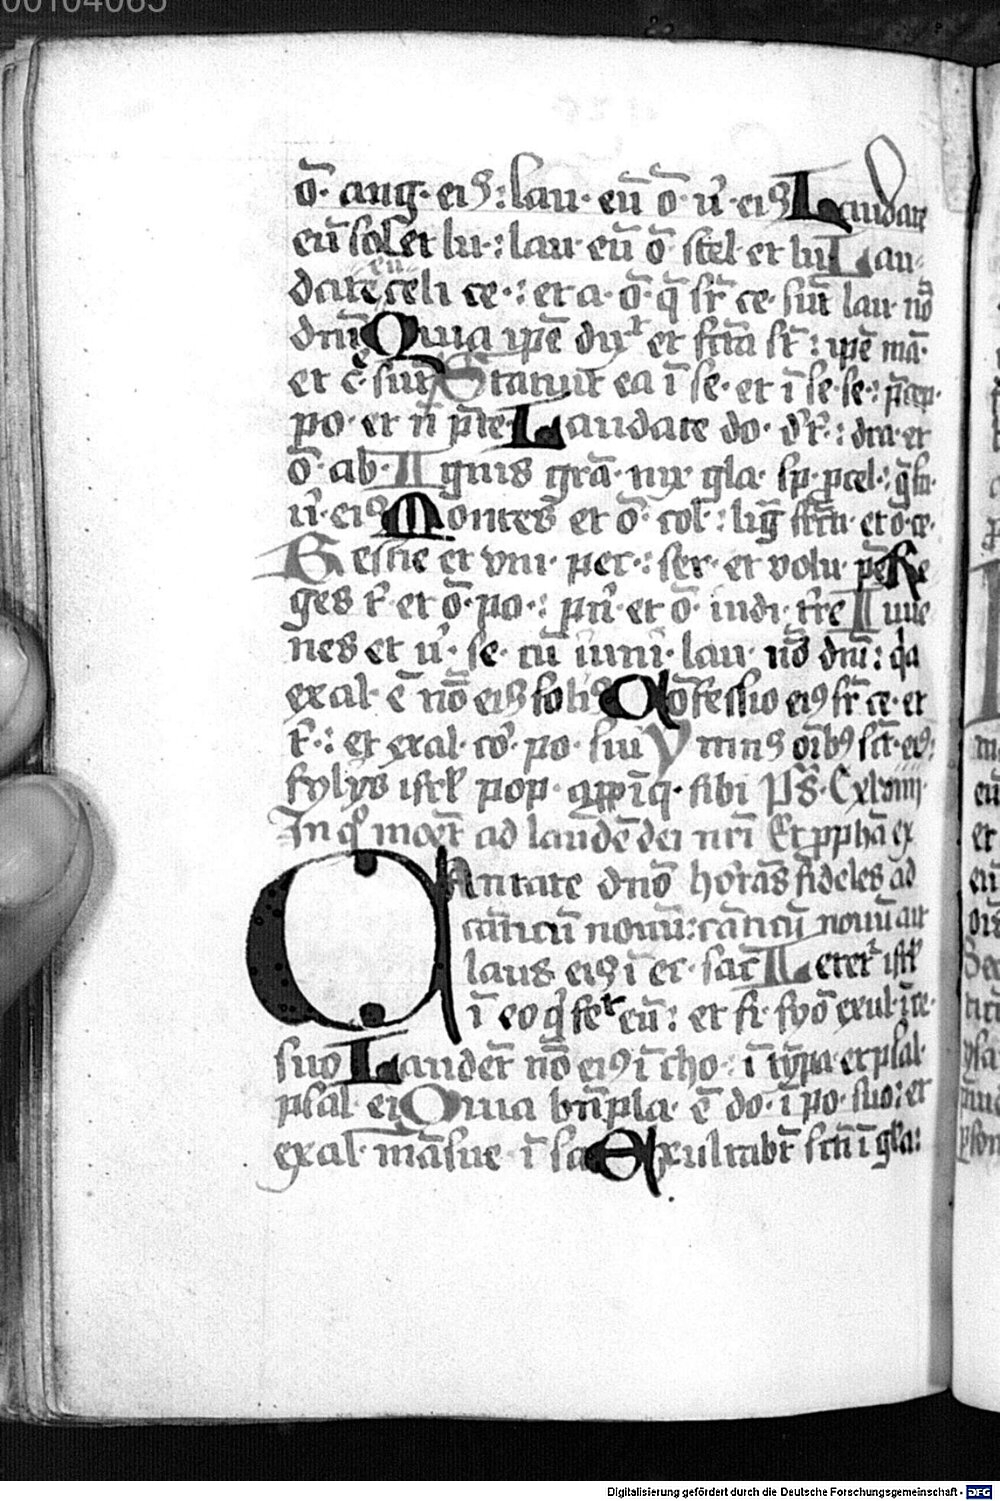 00104065
ō· ang· eiꝰ: lau· eū ō· u̾· eiꝰ Laudate
eū sol et lu·: lau· eū ō· stel· et lu· Lau
date eū celi ce·: et a· ō· q̄ sr̄ ce· sūt lau· nō
dn̄i Quia ip̄e dix͛ et fc̄ta st̄: ip̄e mā·
et c̄· sūt Statuit ea ī se· et ī se· se·: p̄cep·
po· et nō p̄te· Laudate do· d̾ t̾r·: dra· et
ō· ab· Ignis grā· nix gla· sp· ꝓcel·: q̄ fa·
u̾· eiꝰ Montes et ō· col·: lig̅ fruct· et ō· ce·
Bestie et vni· pec·: ser· et volu· pē Re
ges t̾· et ō· po·: pn̄· et ō· iudi· t̾re Iuue
nes et u̾· se· cū iuni· lau· nō dn̄i: qa
exal· ē nō eiꝰ soliꝰ Cōfessio eiꝰ sr̄ ce· et
t̾·: et exal· co̾· po· sui Ymnꝰ oībꝰ sct̄· eiꝰ:
fylys isrł pop· appīq· sibi Ps̄· Cxlviiii·
In q° monet ad laudē dei nr̄i Et ꝓphā ex
Cantate dn̄o hortās fideles ad
cāticū nouū: cāticū nouū aut
laus eiꝰ ī ec· sāc Letet͛ isrł
ī eo q̄ fe͛t eū: et fi· syō exul· ī re·
suo Laudēt nō eiꝰ ī cho· ī tȳpa et psal·
psal· ei Quia bn̄pla· ē do· ī po· suo: et
exal· māsue· ī sa· Exultabt̄ sct̄i ī gla:
Digitalisierung gefördert durch die Deutsche Forschungsgemeinschaft - DFG